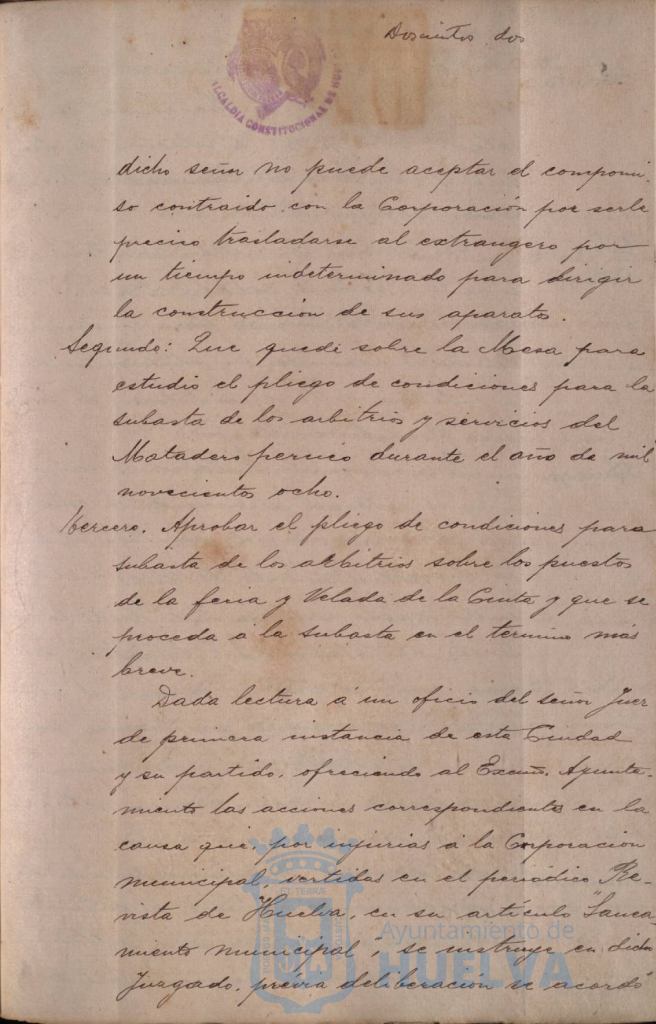 Doscientos dos
ALCALDIA CONSTITUCIONAL DE HUE
dicho señor no puede aceptar el compromi-
so contraido con la Corporación por serle
preciso trasladarse al extrangero por
un tiempo indeterminado para dirigir
la construccion de sus aparatos.
Segundo: Que quede sobre la Mesa para
estudio el pliego de condiciones para la
subasta de los arbitrios y servicios del
Matadero perneo durante el año de mil
novecientos ocho.
Tercero. Aprobar el pliego de condiciones para
subasta de los arbitrios sobre los puestos
de la feria y Velada de la Cinta y que se
proceda á la subasta en el termino más
breve.
Dada lectura á un oficio del señor Juez
de primera instancia de esta Ciudad
y su partido, ofreciendo al Excmo. Ayunta-
miento las acciones correspondientes en la
causa que, por injurias á la Corporacion
municipal, vertidas en el periódico Re-
vista de Huelva, en su artículo "Sanea-
miento municipal", se instruye en dicho
Juzgado, prévia deliberación se acordó
Ayuntamiento de
HUELVA